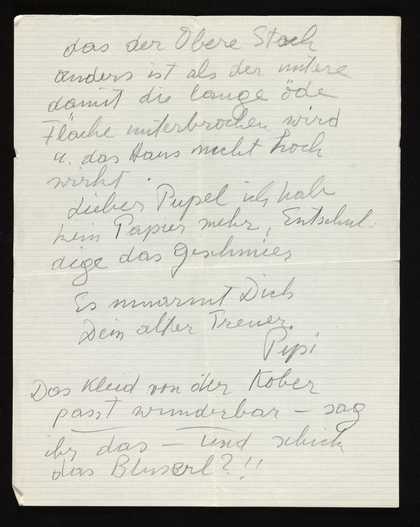 das der Obere Stock
anders ist als der untere
damit die lange öde
Fläche unterbrochen wird
u. das Haus nicht hoch
wirkt.
Lieber Pupel ich hab
kein Papier mehr, Entschul-
dige das Geschmies
Es umarmt Dich
Dein alter Treuer.
Pepi
Das Kleid von der Kober
passt wunderbar – sag
ihr das – und schick
das Bluserl?!!